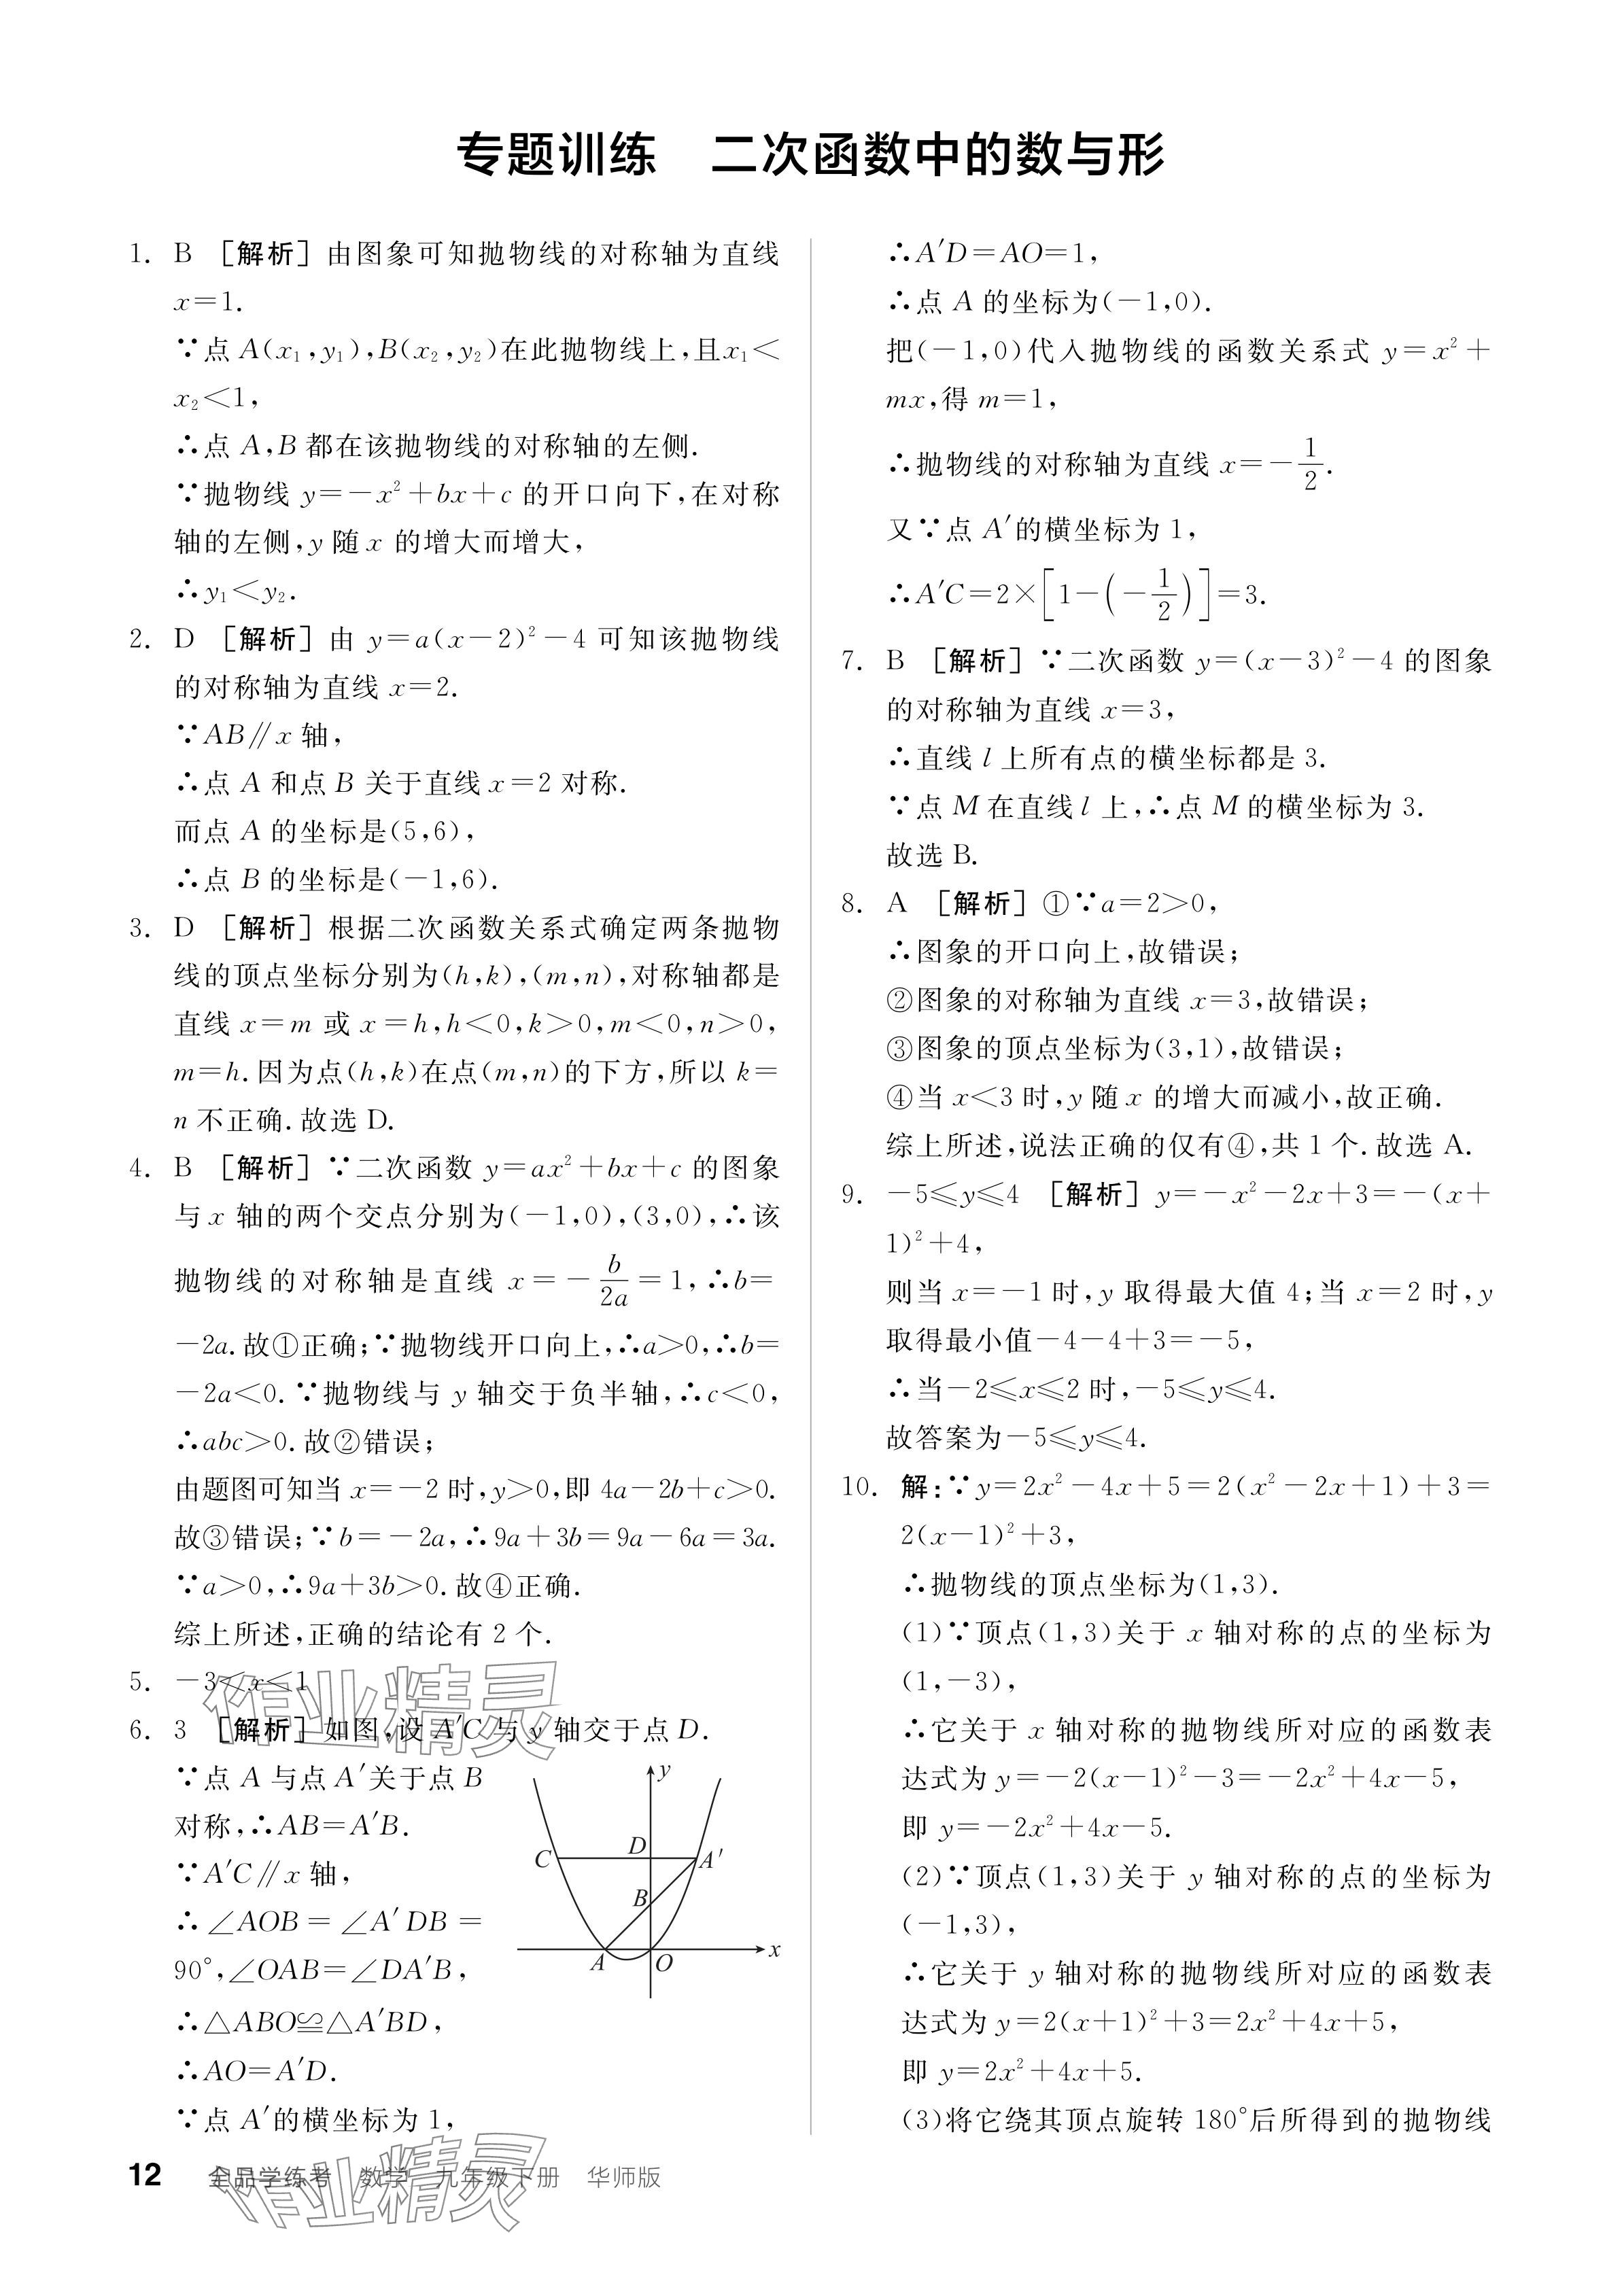 专题训练　二次函数中的数与形
1. B ［解析］由图象可知抛物线的对称轴为直线
x=1.
∵点 A(x₁,y₁),B(x₂,y₂)在此抛物线上,且x₁<
x₂<1,
∴点 A,B 都在该抛物线的对称轴的左侧.
∵抛物线 y=-x²+bx+c 的开口向下,在对称
轴的左侧,y 随 x 的增大而增大,
∴y₁<y₂.
2. D ［解析］由 y=a(x-2)²-4 可知该抛物线
的对称轴为直线 x=2.
∵AB∥x 轴,
∴点 A 和点 B 关于直线 x=2 对称.
而点 A 的坐标是(5,6),
∴点 B 的坐标是(-1,6).
3. D ［解析］根据二次函数关系式确定两条抛物
线的顶点坐标分别为(h,k),(m,n),对称轴都是
直线 x=m 或 x=h,h<0,k>0,m<0,n>0,
m=h.因为点(h,k)在点(m,n)的下方,所以 k=
n 不正确.故选 D.
4. B ［解析］∵二次函数 y=ax²+bx+c 的图象
与 x 轴的两个交点分别为(-1,0),(3,0),∴该
抛物线的对称轴是直线 x=-b/2a=1,∴b=
-2a.故①正确;∵抛物线开口向上,∴a>0,∴b=
-2a<0.∵抛物线与 y 轴交于负半轴,∴c<0,
∴abc>0.故②错误;
由题图可知当 x=-2 时,y>0,即 4a-2b+c>0.
故③错误;∵b=-2a,∴9a+3b=9a-6a=3a.
∵a>0,∴9a+3b>0.故④正确.
综上所述,正确的结论有 2 个.
5. -3<x<1
6. 3 ［解析］如图,设 A′C 与 y 轴交于点 D.
∵点 A 与点 A′关于点 B
对称,∴AB=A′B.
∵A′C∥x 轴,
∴∠AOB=∠A′DB=
90°,∠OAB=∠DA′B,
∴△ABO≌△A′BD,
∴AO=A′D.
∵点 A′的横坐标为 1,
y
C
D
A′
B
A
O
x
∴A′D=AO=1,
∴点 A 的坐标为(-1,0).
把(-1,0)代入抛物线的函数关系式 y=x²+
mx,得 m=1,
∴抛物线的对称轴为直线 x=-1/2.
又∵点 A′的横坐标为 1,
∴A′C=2×[1-(-1/2)]=3.
7. B ［解析］∵二次函数 y=(x-3)²-4 的图象
的对称轴为直线 x=3,
∴直线 l 上所有点的横坐标都是 3.
∵点 M 在直线 l 上,∴点 M 的横坐标为 3.
故选 B.
8. A ［解析］①∵a=2>0,
∴图象的开口向上,故错误;
②图象的对称轴为直线 x=3,故错误;
③图象的顶点坐标为(3,1),故错误;
④当 x<3 时,y 随 x 的增大而减小,故正确.
综上所述,说法正确的仅有④,共 1 个.故选 A.
9. -5≤y≤4 ［解析］y=-x²-2x+3=-(x+
1)²+4,
则当 x=-1 时,y 取得最大值 4;当 x=2 时,y
取得最小值-4-4+3=-5,
∴当-2≤x≤2 时,-5≤y≤4.
故答案为-5≤y≤4.
10. 解:∵y=2x²-4x+5=2(x²-2x+1)+3=
2(x-1)²+3,
∴抛物线的顶点坐标为(1,3).
(1)∵顶点(1,3)关于 x 轴对称的点的坐标为
(1,-3),
∴它关于 x 轴对称的抛物线所对应的函数表
达式为 y=-2(x-1)²-3=-2x²+4x-5,
即 y=-2x²+4x-5.
(2)∵顶点(1,3)关于 y 轴对称的点的坐标为
(-1,3),
∴它关于 y 轴对称的抛物线所对应的函数表
达式为 y=2(x+1)²+3=2x²+4x+5,
即 y=2x²+4x+5.
(3)将它绕其顶点旋转 180°后所得到的抛物线
作业精灵
12 全品学练考 数学 九年级下册 华师版
作业精灵